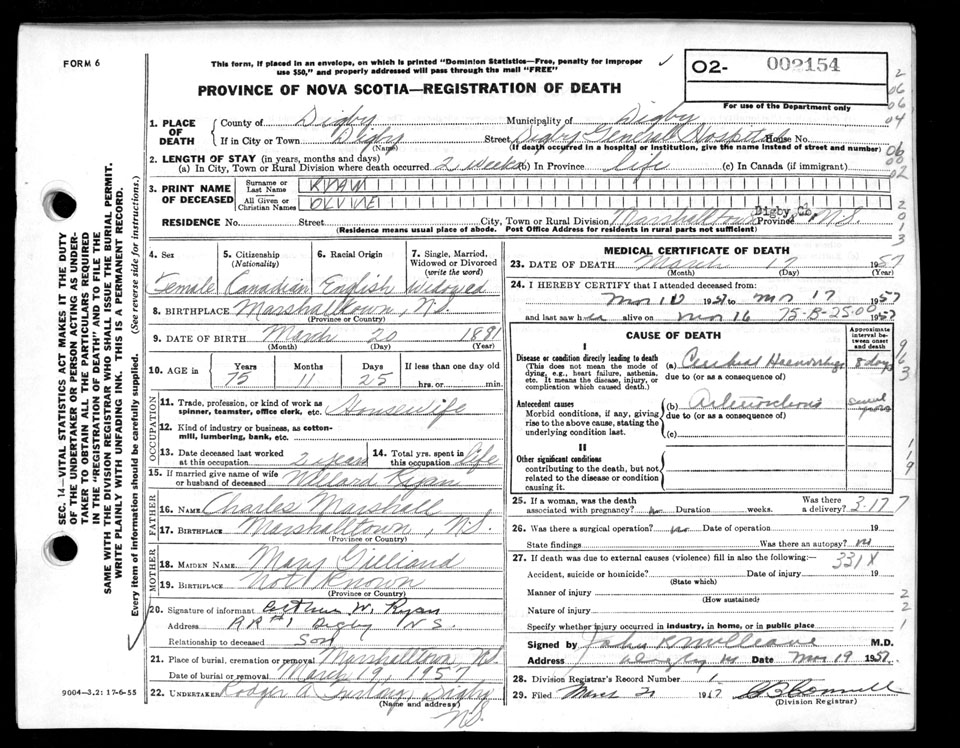 FORM 6
This form, if placed in an envelope, on which is printed "Dominion Statistics—Free, penalty for improper
use $50," and properly addressed will pass through the mail "FREE"
02- 002154
For use of the Department only
PROVINCE OF NOVA SCOTIA—REGISTRATION OF DEATH
1. PLACE OF DEATH
County of Digby Municipality of Digby
If in City or Town Digby Street Digby General Hospital House No.
(Name) (If death occurred in a hospital or institution, give the name instead of street and number)
2. LENGTH OF STAY (in years, months and days)
(a) In City, Town or Rural Division where death occurred 2 weeks (b) In Province life (c) In Canada (if immigrant)
3. PRINT NAME OF DECEASED
Surname or Last Name RYAN
All Given or Christian Names
RESIDENCE No. Street City, Town or Rural Division Marshalltown Digby Co. Province N.S.
(Residence means usual place of abode. Post Office Address for residents in rural parts not sufficient)
4. Sex 5. Citizenship (Nationality) 6. Racial Origin 7. Single, Married, Widowed or Divorced (write the word)
Female Canadian English Widowed
8. BIRTHPLACE Marshalltown, N.S.
(Province or Country)
9. DATE OF BIRTH March 20 1881
(Month) (Day) (Year)
10. AGE in Years Months Days If less than one day old
75 11 25 hrs. or min.
OCCUPATION
11. Trade, profession, or kind of work as spinner, teamster, office clerk, etc. Housewife
12. Kind of industry or business, as cotton-mill, lumbering, bank, etc.
13. Date deceased last worked at this occupation 2 years 14. Total yrs. spent in this occupation life
15. If married give name of wife or husband of deceased Willard Ryan
FATHER
16. NAME Charles Marshall
17. BIRTHPLACE Marshalltown, N.S.
(Province or Country)
MOTHER
18. MAIDEN NAME Mary Gilliland
19. BIRTHPLACE Not Known
(Province or Country)
20. Signature of informant Arthur W. Ryan
Address RR#1 Digby N.S.
Relationship to deceased Son
21. Place of burial, cremation or removal Marshalltown N.S.
Date of burial or removal March 19, 1957
22. UNDERTAKER Digby
(Name and address)
N.S.
MEDICAL CERTIFICATE OF DEATH
23. DATE OF DEATH March 17 1957
(Month) (Day) (Year)
24. I HEREBY CERTIFY that I attended deceased from:
Mar 1957 to Mar 17 1957
and last saw her alive on Mar 16 75-B-25-00 1957
CAUSE OF DEATH
Approximate interval between onset and death
I
Disease or condition directly leading to death (a) Cerebral Haemorrhage 8 days
(This does not mean the mode of dying, e.g., heart failure, asthenia, etc. It means the disease, injury, or complication which caused death.)
due to (or as a consequence of)
Antecedent causes (b) Arteriosclerosis several years
Morbid conditions, if any, giving rise to the above cause, stating the underlying condition last.
due to (or as a consequence of)
(c)
II
Other significant conditions
contributing to the death, but not related to the disease or condition causing it.
25. If a woman, was the death associated with pregnancy? no Duration weeks. Was there a delivery? 3.17 7
26. Was there a surgical operation? no Date of operation 19
State findings Was there an autopsy? no
27. If death was due to external causes (violence) fill in also the following: 331X
Accident, suicide or homicide? Date of injury 19
(State which)
Manner of injury
(How sustained)
Nature of injury
Specify whether injury occurred in industry, in home, or in public place
Signed by John R M.D.
Address Digby NS Date Mar 19 1957
28. Division Registrar's Record Number 1
29. Filed March 21 1957
(Division Registrar)
SEC. 14—VITAL STATISTICS ACT MAKES IT THE DUTY
OF THE UNDERTAKER OR PERSON ACTING AS UNDER-
TAKER TO OBTAIN ALL THE PARTICULARS REQUIRED
IN THE "REGISTRATION OF DEATH" AND TO FILE THE
SAME WITH THE DIVISION REGISTRAR WHO SHALL ISSUE THE BURIAL PERMIT.
WRITE PLAINLY WITH UNFADING INK. THIS IS A PERMANENT RECORD.
Every item of information should be carefully supplied. (See reverse side for instructions.)
9004—3.2: 17-6-55